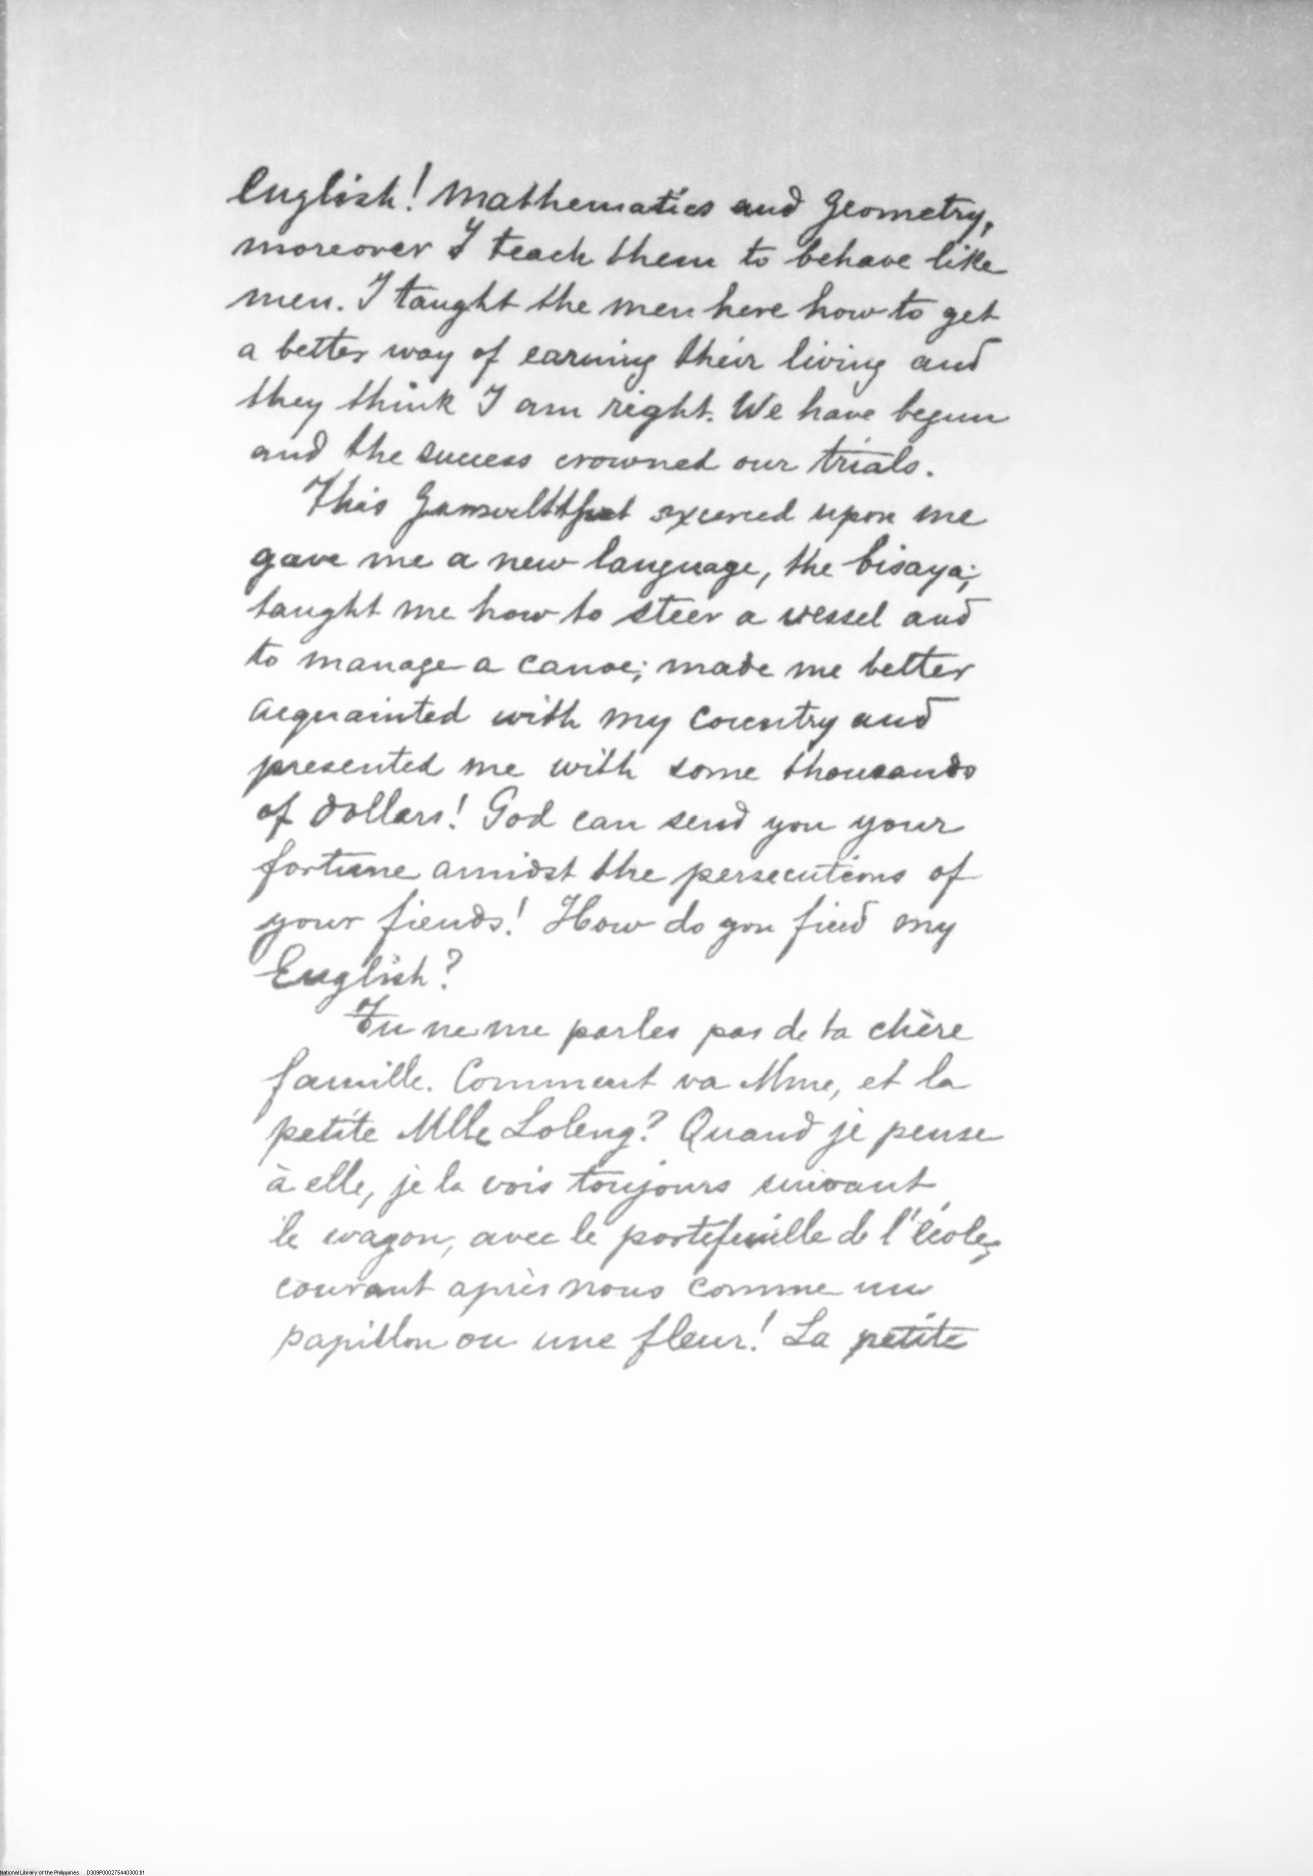 English! Mathematics and Geometry,
moreover I teach them to behave like
men. I taught the men here how to get
a better way of earning their living and
they think I am right. We have begun
and the success crowned our trials.
This upon me
gave me a new language, the bisaya;
taught me how to steer a vessel and
to manage a canoe; made me better
acquainted with my country and
presented me with some thousands
of dollars! God can send you your
fortune amidst the persecutions of
your fiends! How do you find my
English?
Tu ne me parles pas de ta chère
famille. Comment va Mme, et la
petite Mlle Loleng? Quand je pense
à elle, je la vois toujours suivant
le wagon, avec le portefeuille de l'école,
courant après nous comme un
papillon ou une fleur! La petite
National Library of the Philippines